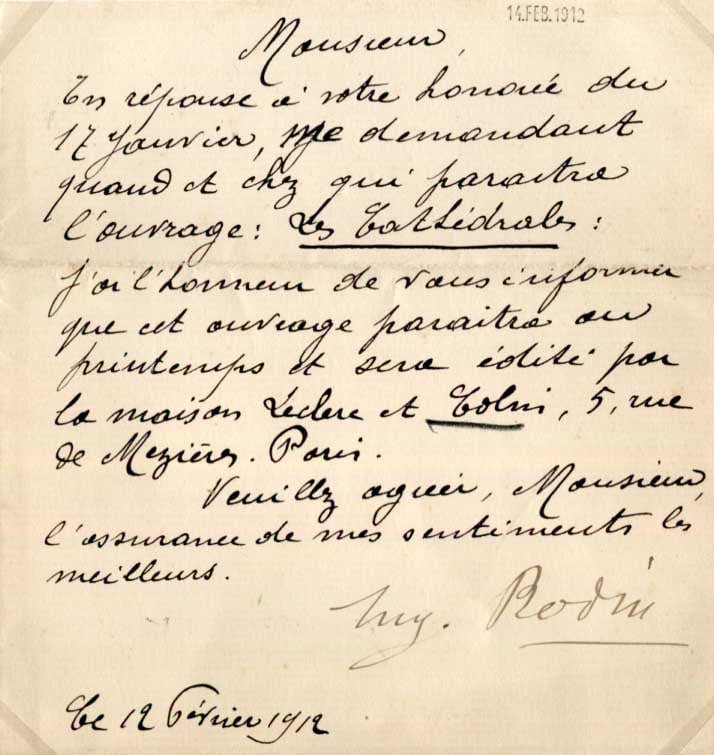 14.FEB.1912
Monsieur,
En réponse à votre honorée du
17 Janvier, me demandant
quand et chez qui paraitra
l'ouvrage: Les Cathédrales:
J'ai l'honneur de vous informer
que cet ouvrage paraitra au
printemps et sera édité par
la maison Leclerc et Colin, 5, rue
de Mezières. Paris.
Veuillez agréer, Monsieur,
l'assurance de mes sentiments les
meilleurs.
Aug. Rodin
Le 12 Février 1912